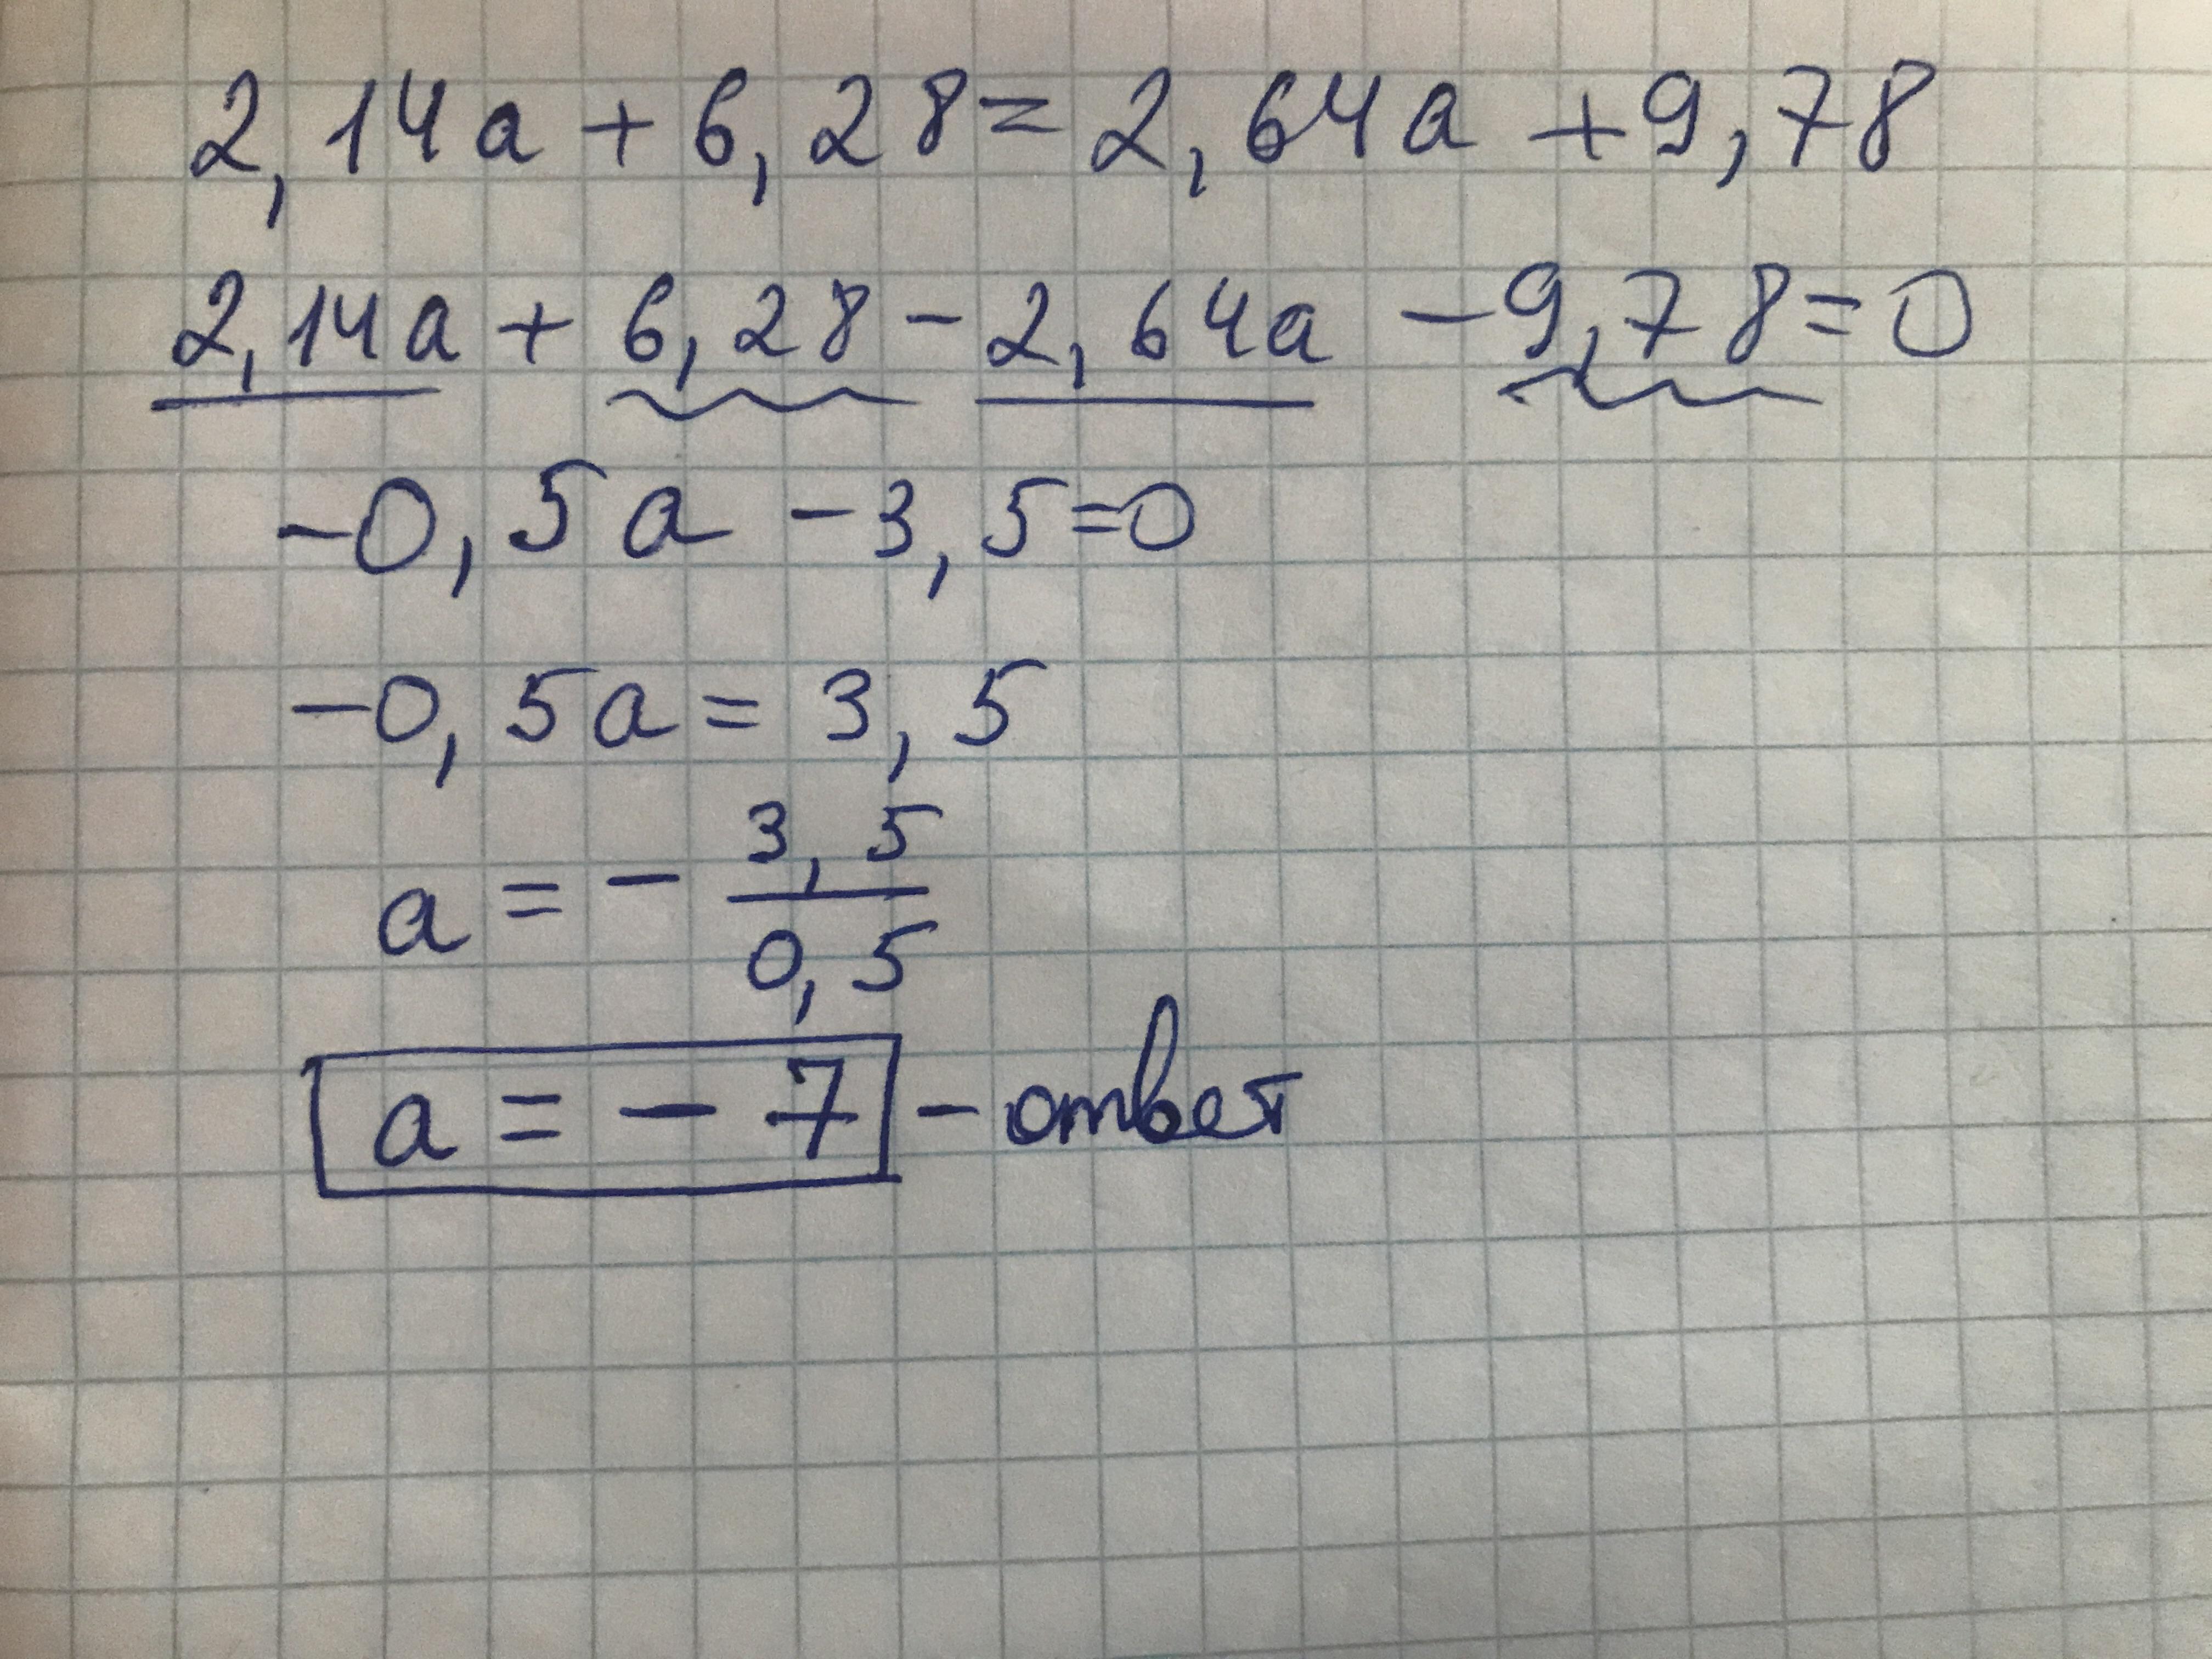 2,14a + 6,28 = 2,64a + 9,78
2,14a + 6,28 - 2,64a - 9,78 = 0
-0,5a - 3,5 = 0
-0,5a = 3,5
a = - 3,5/0,5
a = - 7 - ответ